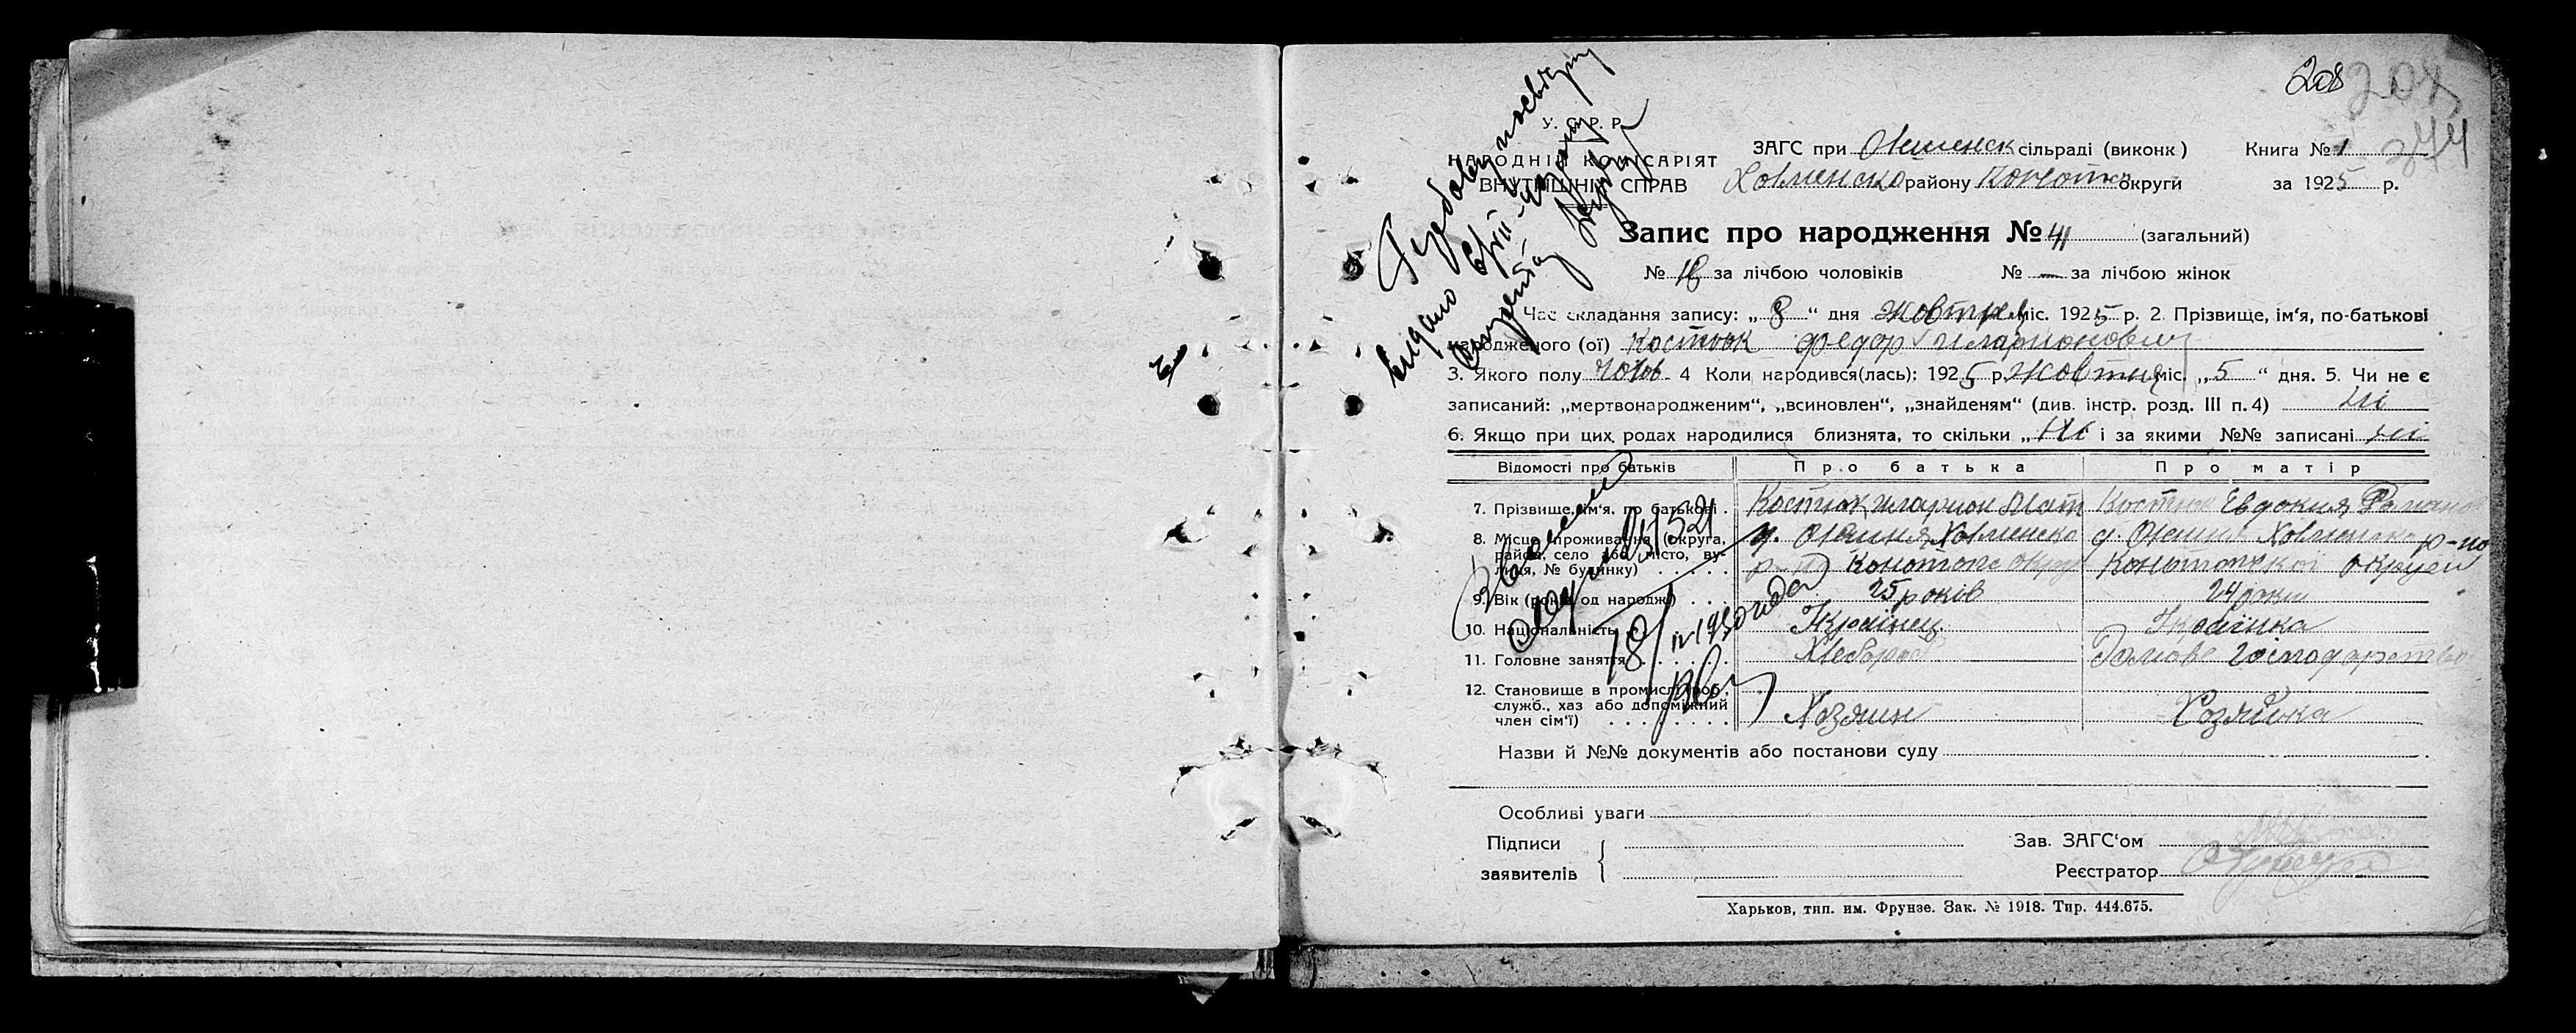 208
207
244
У. С. Р. Р.
НАРОДНІЙ КОМІСАРІЯТ
ВНУТРІШНІХ СПРАВ
ЗАГС при сільраді (виконк)
Книга № 1
району округи
за 1925 р.
Запис про народження № 41 (загальний)
№ 18 за лічбою чоловіків № — за лічбою жінок
Час складання запису: „ 8 “ дня Жовтня міс. 1925 р. 2. Прізвище, ім‘я, по-батькові
народженого (ої) Костюк Федор Иларионович
3. Якого полу Чолов. 4 Коли народився(лась): 1925 р. Жовтня міс. „ 5 “ дня. 5. Чи не є
записаний: „мертвонародженим“, „всиновлен“, „знайденям“ (див. інстр. розд. III п. 4) Ні
6. Якщо при цих родах народилися близнята, то скільки „ Ні і за якими №№ записані ні
Відомості про батьків Про батька Про матір
7. Прізвище, ім‘я, по батькові . Костюк Иларион Мат Костюк Евдокия Роман
8. Місце проживання (округа,
район, село або місто, ву-
лиця, № будинку) . . . . . Конотопс Конотопскої Округи
9. Вік (років од народж.) . . . 25 років 24 роки
10. Національність Українец Українка
11. Головне заняття Хлебороб Домове господарство
12. Становище в промислі (роб.,
служб., хаз або допоміжний
член сім‘ї) . . . . . . . . Хозяин Хозяйка
Назви й №№ документів або постанови суду
Особливі уваги
Підписи
заявителів
Зав. ЗАГС‘ом
Реєстратор
Харьков, тип. им. Фрунзе. Зак. № 1918. Тир. 444.675.